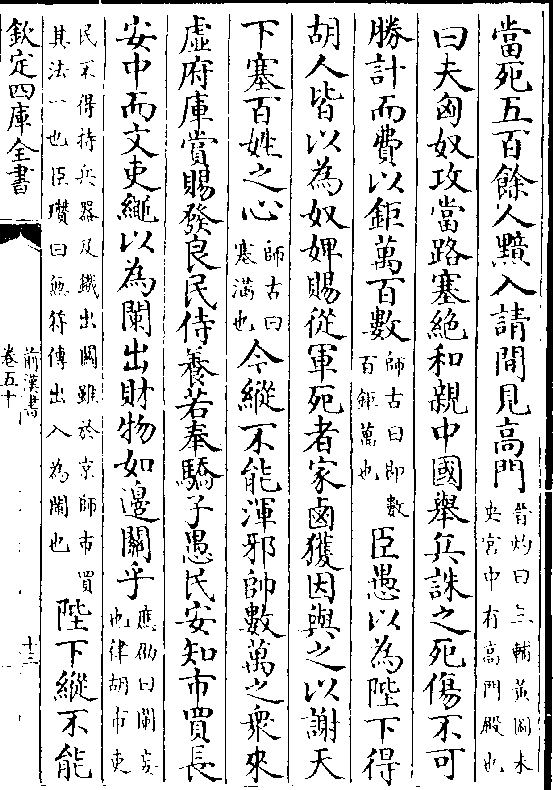 當死五百餘人黯入請間見高門晉灼曰三輔黃圖未央宮中有高門殿也
曰夫匈奴攻當路塞絶和親中國舉兵誅之死傷不可
勝計而費以鉅萬百數師古曰即數百鉅萬也臣愚以為陛下得
胡人皆以為奴婢賜從軍死者家鹵獲因與之以謝天
下塞百姓之心師古曰塞滿也今縱不能渾邪帥數萬之衆來
虛府庫賞賜發良民侍養若奉驕子愚民安知市買長
安中而文吏繩以為闌出財物如邊關乎應劭曰闌妄也律胡市吏
民不得持兵器及鐵出關雖於京師市買其法一也臣瓚曰無符傳出入為闌也陛下縱不能
欽定四庫全書
前漢書
卷五十
十三